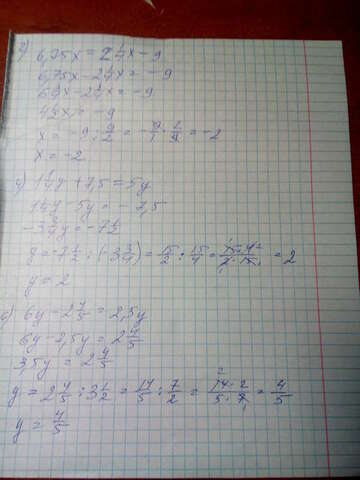 2) 6,75x = 2 1/4 x - 9
6,75x - 2 1/4 x = -9
6 3/4 x - 2 1/4 x = -9
4 1/2 x = -9
x = -9 : 9/2 = -9/1 · 2/9 = -2
x = -2
4) 1 1/4 y + 7,5 = 5y
1 1/4 y - 5y = -7,5
-3 3/4 y = -7 1/2
y = -7 1/2 : (-3 3/4) = 15/2 : 15/4 = 15·4/2·15 = 2
y = 2
6) 6y - 2 4/5 = 2,5y
6y - 2,5y = 2 4/5
3,5y = 2 4/5
y = 2 4/5 : 3 1/2 = 14/5 : 7/2 = 14·2/5·7 = 4/5
y = 4/5